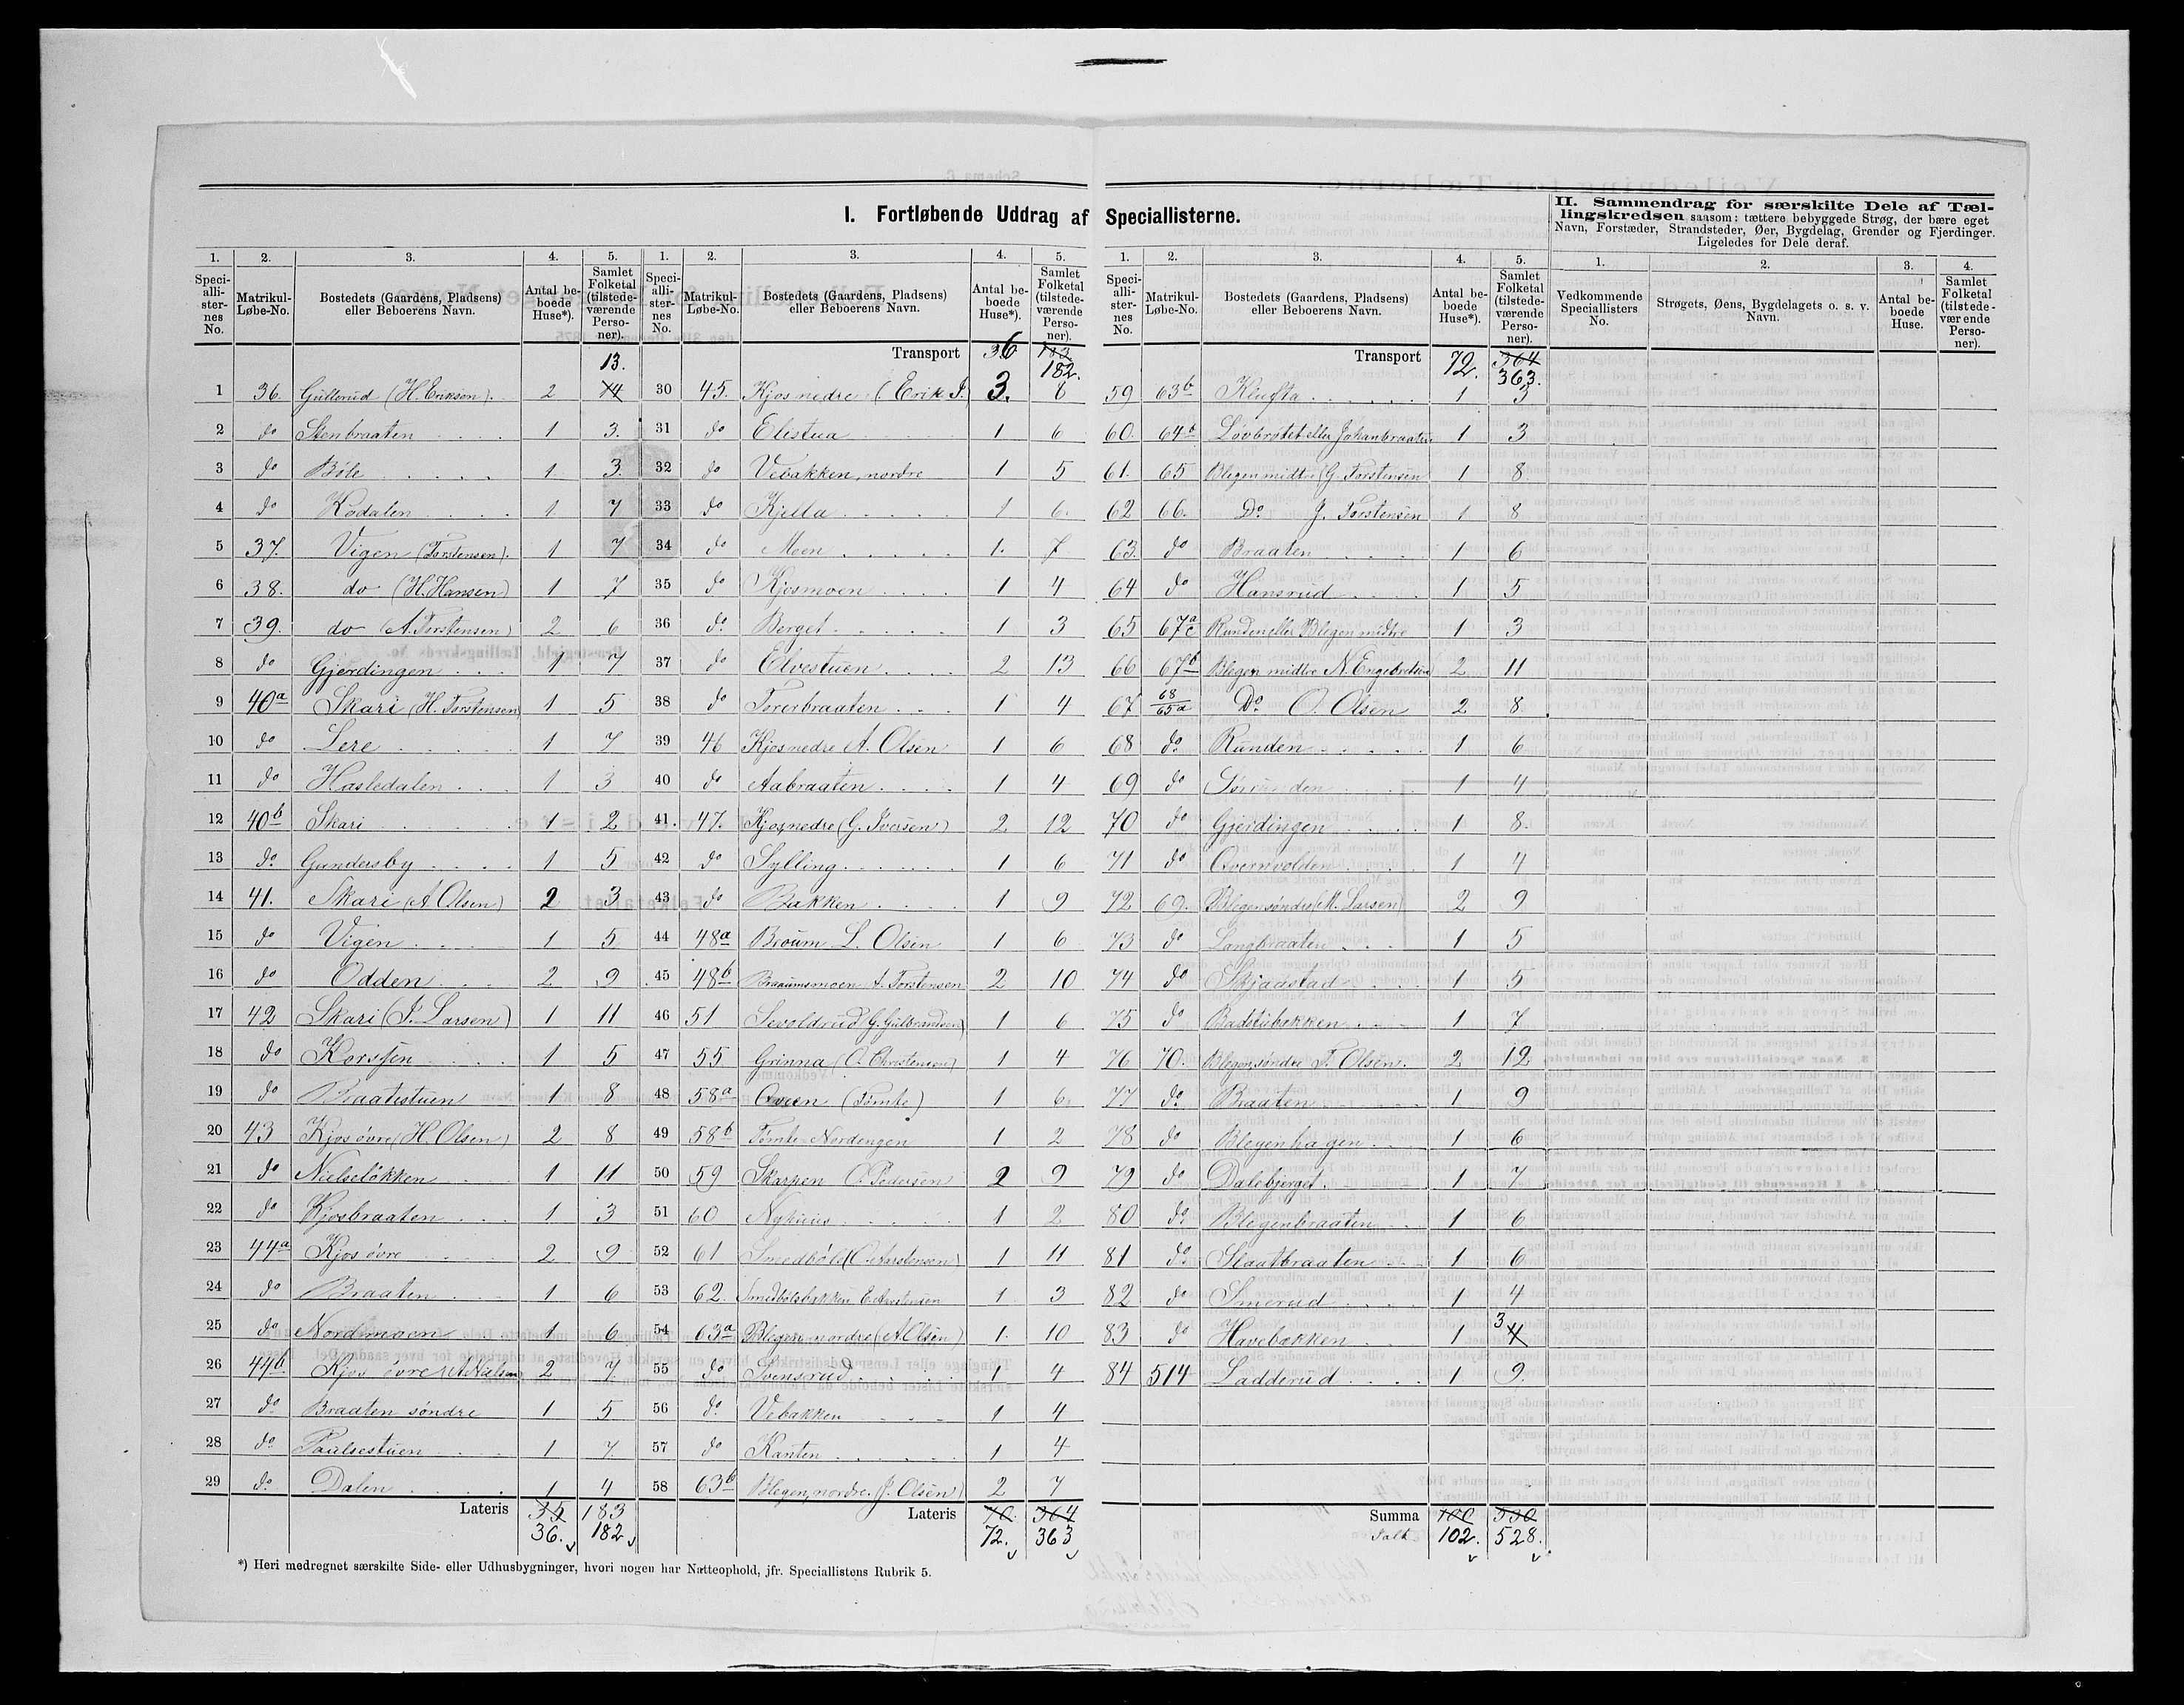 I. Fortløbende Uddrag af Speciallisterne.
II. Sammendrag for særskilte Dele af Tæl-
lingskredsen saasom: tættere bebyggede Strøg, der bære eget
Navn, Forstæder, Strandsteder, Øer, Bygdelag, Grender og Fjerdinger.
Ligeledes for Dele deraf.
1. 2. 3. 4. 5.
Speciallisternes No. Matrikul-Løbe-No. Bostedets (Gaardens, Pladsens) eller Beboerens Navn. Antal beboede Huse*). Samlet Folketal (tilstedeværende Personer).
13.
1 36. Gullerud (H. Eriksen). 2 14
2 do Stenbraaten 1 3.
3 do Bøle 1 3.
4 do Kødalen 1 7
5 37. Vigen (Torstensen). 1 7
6 38. do (H. Hansen) 1 7
7 39. do (A. Torstensen) 2 6
8 do Gjerdingen 1 7
9 40a Skari (H. Torstensen) 1 5
10 do Lere 1 7
11 do Hasledalen 1 3
12 40b Skari 1 2
13 do Gundersby 1 5
14 41. Skari (A. Olsen) 2 3
15 do Vigen 1 5
16 do Odden 2 9
17 42 Skari (P. Larsen) 1 11
18 do 1 5
19 do Braatestuen 1 8
20 43 Kjos øvre (H. Olsen) 2 8
21 do Nielseløkken 1 11
22 do Kjosbraaten 1 3
23 44a Kjos øvre 2 9
24 do Braaten 1 6
25 do Nordmoen 1 6
26 44b Kjos øvre 2 7
27 do Braaten søndre 1 5
28 do Paulsestuen 1 7
29 do Dalen 1 4
Lateris 35 183
36. 182
1. 2. 3. 4. 5.
Speciallisternes No. Matrikul-Løbe-No. Bostedets (Gaardens, Pladsens) eller Beboerens Navn. Antal beboede Huse*). Samlet Folketal (tilstedeværende Personer).
Transport 36 183
182.
30 45. Kjos nedre (Erik I.) 3. 8
31 do Elistua 1 6
32 do Vebakken, nordre 1 5
33 do Kjella 1 6.
34 do Moen 1. 7
35 do Kjosmoen 1 4
36 do Berget 1 3
37 do Elvestuen 2 13
38 do Torerbraaten 1 4
39 46 Kjos nedre A. Olsen 1 6
40 do Aabraaten 1 4
41. 47. Kjos nedre (G. Iversen) 2 12
42 do Sylling 1 6
43 do Bakken 1 9
44 48a Broum L. Olsen 1 6
45 48b Braaumsmoen A. Torstensen 2 10
46 51 Sevoldrud (G. Gulbrandsen) 1 6
47 55 Grinna (O. Christensen) 1 4
48 58a (Tømte) 1 6
49 58b Tømte-Nordengen 1 2
50 59 Skarpen O. Pedersen 2 9
51 60 Nyhuus 1 2
52 61 Smedbøle (O. Aarstensen) 1 11
53 62. Smedbølsbakken E. Aarstensen 1 3
54 63a Blegen nordre (A. Olsen) 1. 10
55 do Svensrud 1 4
56 do Vebakken 1 4
57 do Kanten 1 4
58 63b Blegen, nordre. (J. Olsen) 2 7
Lateris 70. 364
72. 363
1. 2. 3. 4. 5.
Speciallisternes No. Matrikul-Løbe-No. Bostedets (Gaardens, Pladsens) eller Beboerens Navn. Antal beboede Huse*). Samlet Folketal (tilstedeværende Personer).
Transport 72. 364
363.
59 63b Kløfta 1 3
60. 64b Løvbrøtet eller Johanbraaten 1 3
61. 65 Blegen midtre (G. Torstensen 1 8.
62 66. Do. J. Torstensen 1 8
63. do Braaten 1 6
64 do Hansrud 1 5
65 67a c Runden eller Blegen midtre 1 3
66 67b Blegen midtre N. Engebretsen 2 11
67 68/65a Do. O. Olsen 2 8.
68 do Runden 1 6
69 do 1 4
70 do Gjerdingen 1 8.
71 do Qvernvolden 1 4
72 69. Blegen søndre (M. Larsen) 2 9
73 do Langbraaten 1 5
74 do Skjadstad 1 5
75 do Badstubakken 1 7
76 70. Blegen, søndre T. Olsen. 2 12
77 do Braaten 1 9
78 do Blegenhagen 1 6
79 do Dalebjerget 1 7
80 do Blegenbraaten 1 6
81 do Slaatbraaten 1 6
82 do Smerud 1 4
83 do Havebakken 1 3 4
84 514 Ladderud 1 9.
Summa 100 530
Talt 102. 528.
1. 2. 3. 4.
Vedkommende Speciallisters No. Strøgets, Øens, Bygdelagets o. s. v. Navn. Antal beboede Huse. Samlet Folketal (tilstedeværende Personer).
*) Heri medregnet særskilte Side- eller Udhusbygninger, hvori nogen har Natteophold, jfr. Speciallistens Rubrik 5.